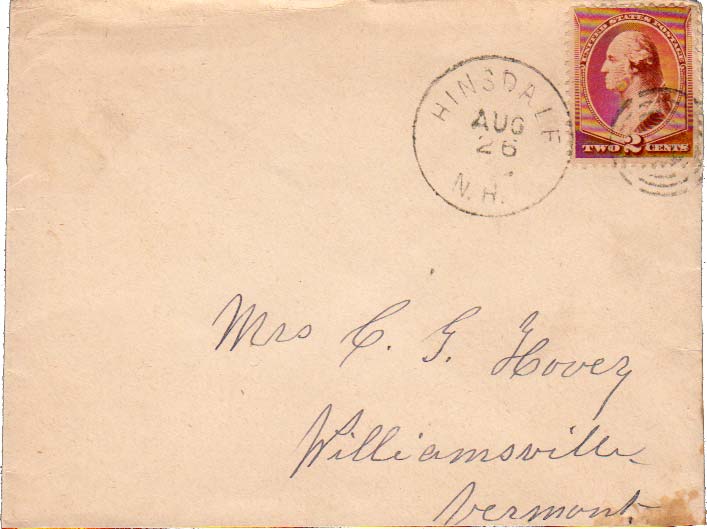 UNITED STATES POSTAGE
TWO 2 CENTS
HINSDALE
AUG
26
N.H.
Mrs C. G. Hovey
Williamsville
Vermont